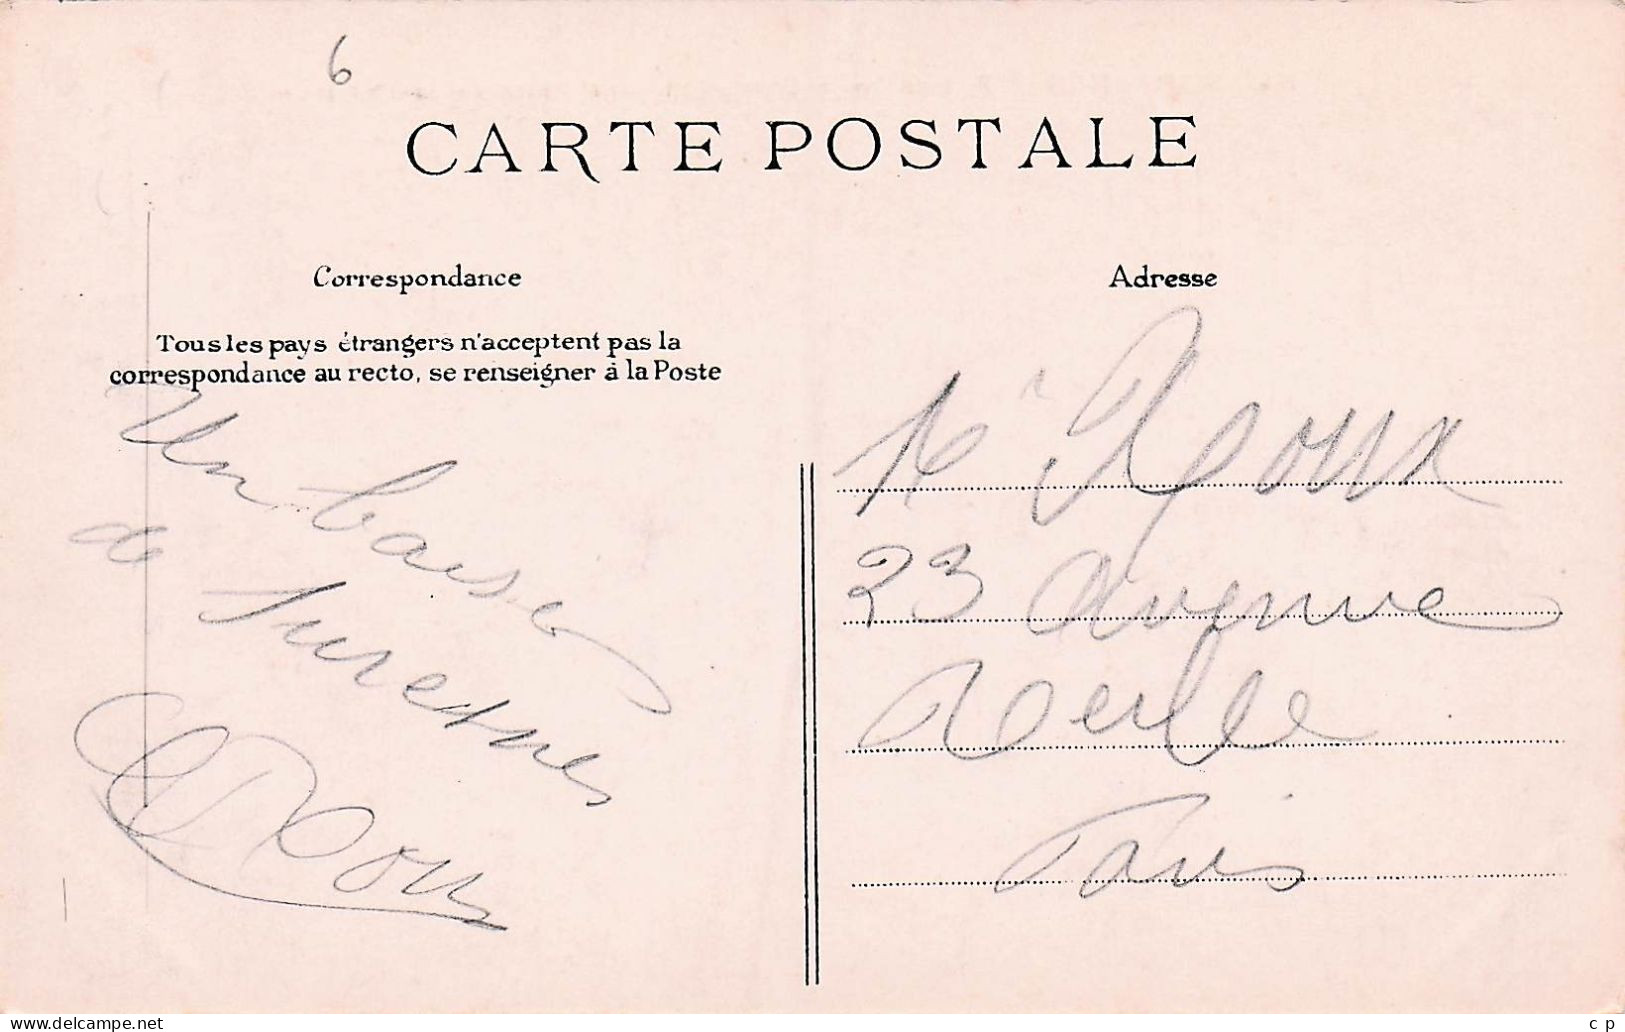 6
CARTE POSTALE
Correspondance
Tous les pays étrangers n'acceptent pas la
correspondance au recto, se renseigner à la Poste
Un baiser
de Suresnes
Roux
Adresse
Mr Roux
23 Avenue
Reille
Paris
www.delcampe.net
c p